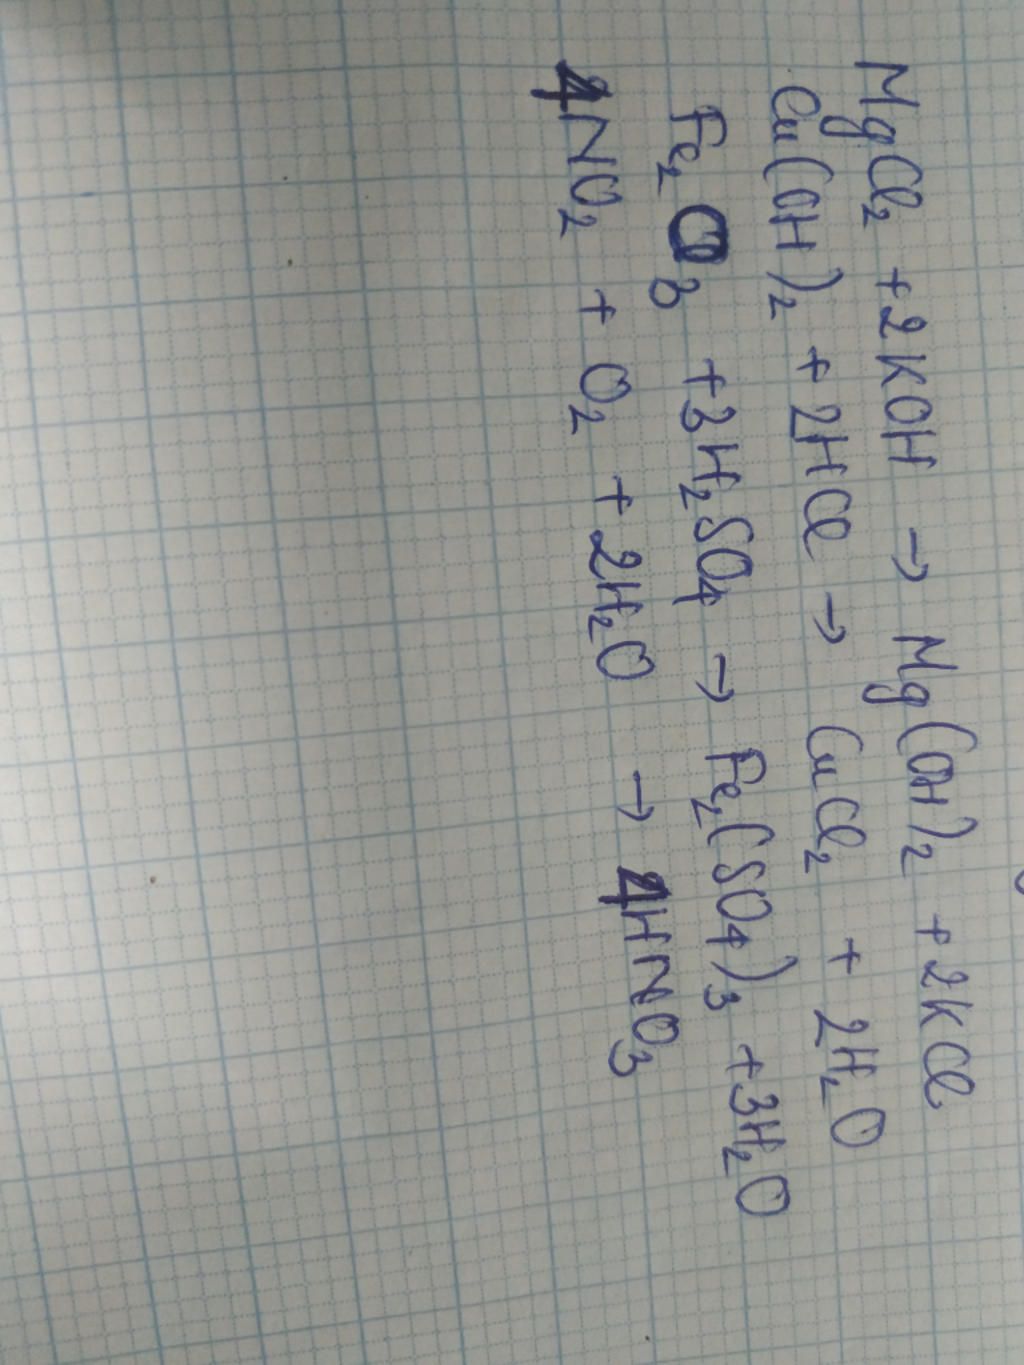 MgCl₂ +2KOH → Mg(OH)₂ +2KCl
Cu(OH)₂ + 2HCl → CuCl₂ + 2H₂O
Fe₂O₃ +3H₂SO₄ → Fe₂(SO₄)₃ +3H₂O
4NO₂ + O₂ + 2H₂O → 4HNO₃